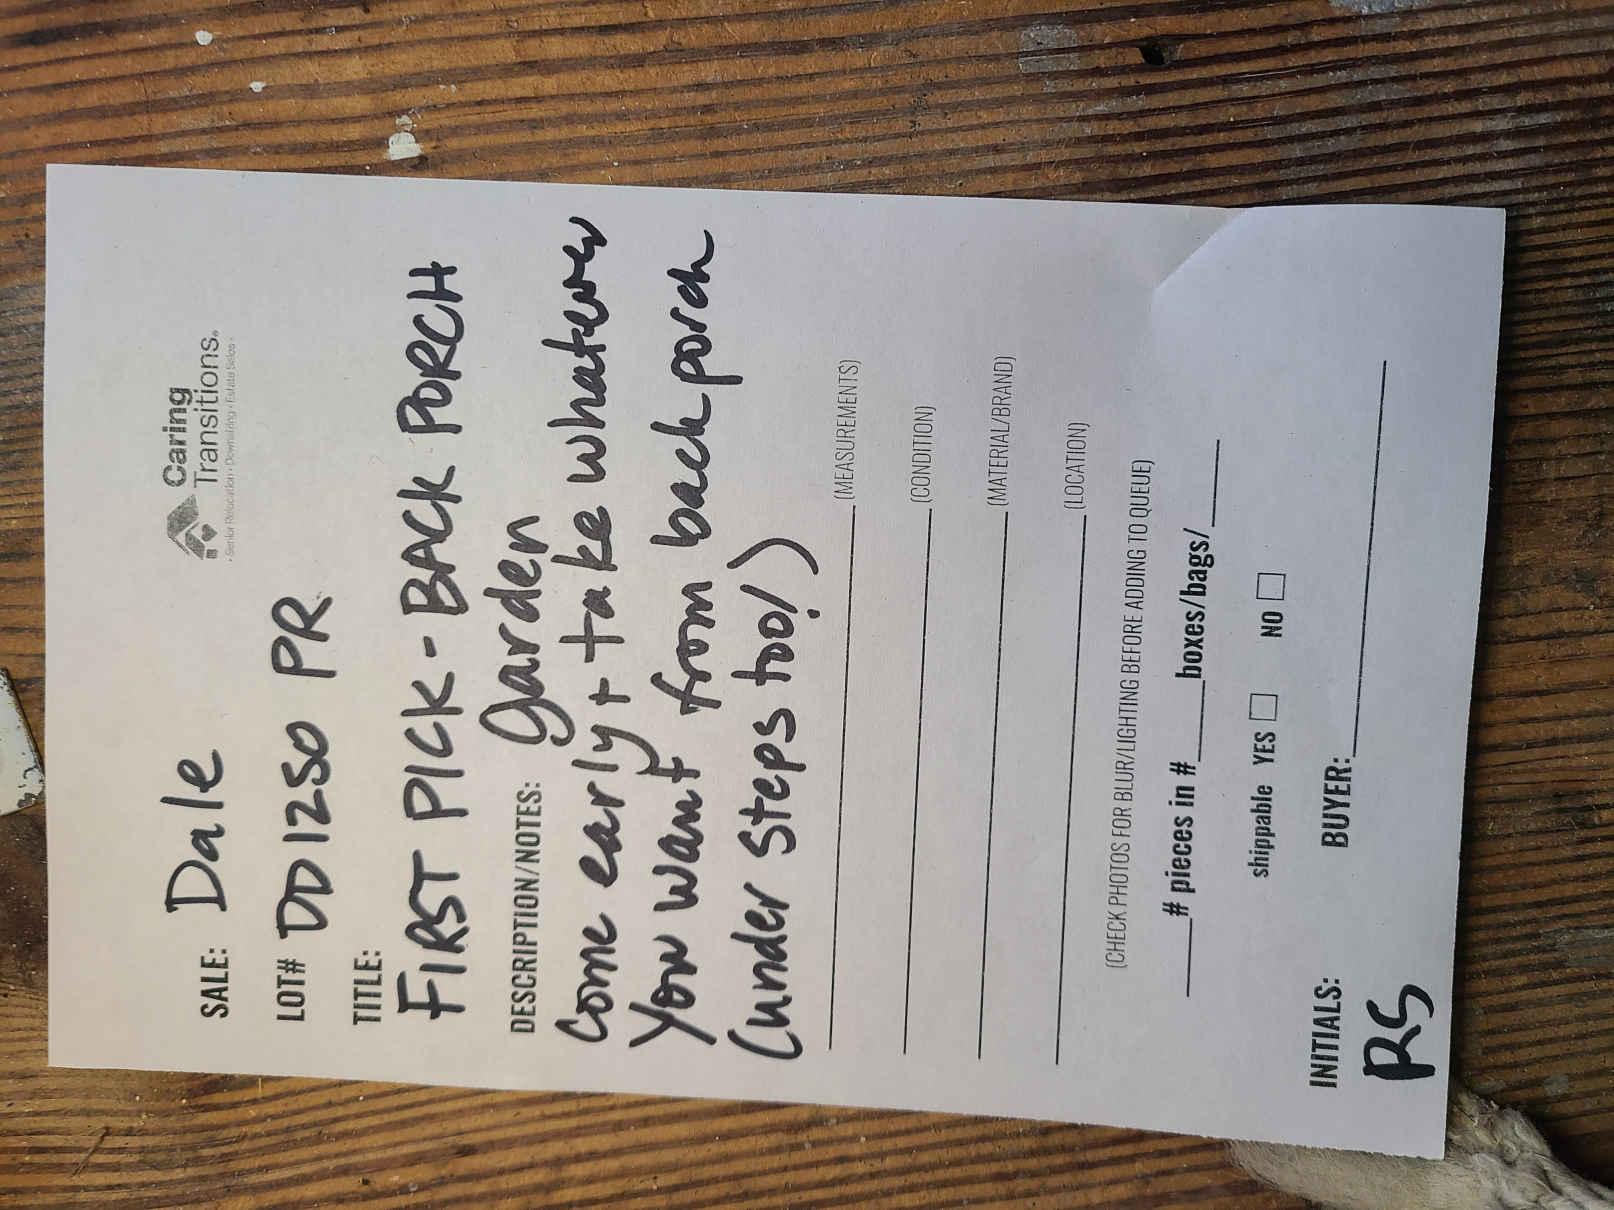 Caring
Transitions.
• Senior Relocation • Downsizing • Estate Sales •
SALE: Dale
LOT# DD1250 PR
TITLE:
FIRST PICK - BACK PORCH
DESCRIPTION/NOTES: Garden
Come early + take whatever
You want from back porch
(under steps too!)
(MEASUREMENTS)
(CONDITION)
(MATERIAL/BRAND)
(LOCATION)
(CHECK PHOTOS FOR BLUR/LIGHTING BEFORE ADDING TO QUEUE)
____# pieces in #____boxes/bags/____
shippable YES ☐ NO ☐
INITIALS: BUYER:____
RS